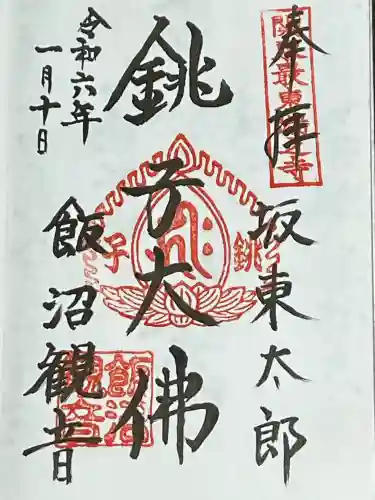 奉拝
関東最東運寺
坂東太郎
銚子大佛
銚子
令和六年
一月十日
飯沼観音
飯沼観音